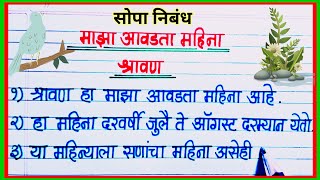 सोपा निबंध
माझा आवडता महिना
श्रावण
१) श्रावण हा माझा आवडता महिना आहे.
२) हा महिना दरवर्षी जुलै ते ऑगस्ट दरम्यान येतो.
३) या महिन्याला सणांचा महिना असेही